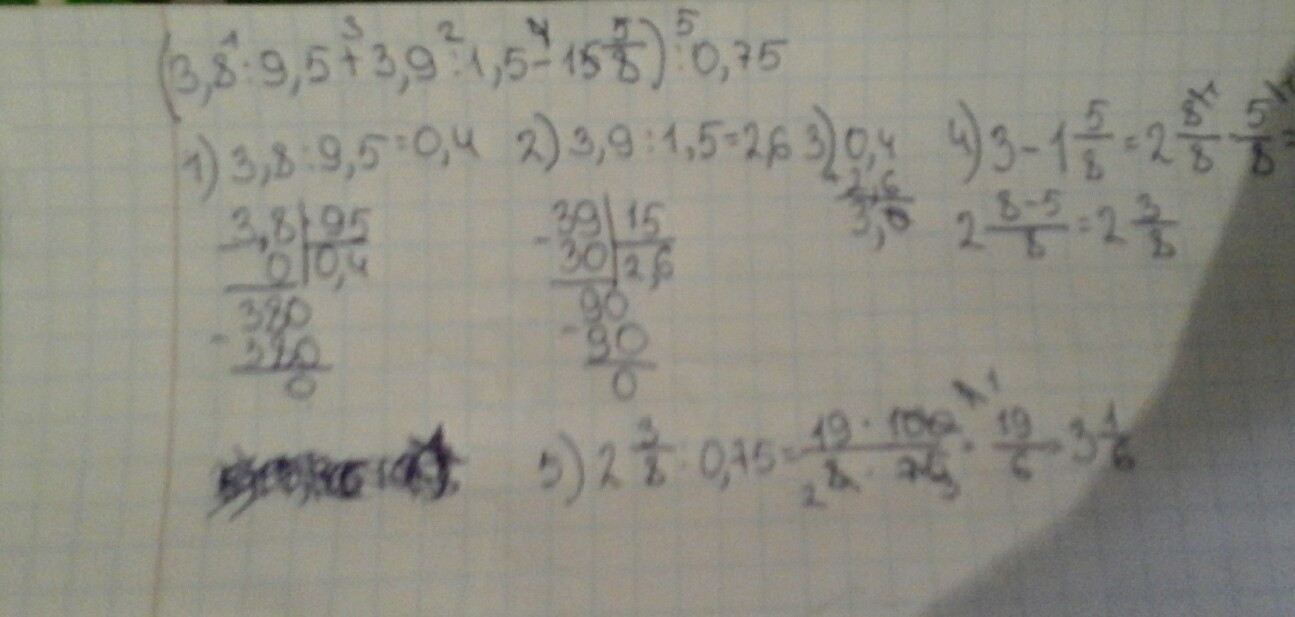 (3,8 : 9,5 + 3,9 : 1,5 - 15 5/8) : 0,75
1 3 2 4 5
1) 3,8 : 9,5 = 0,4 2) 3,9 : 1,5 = 2,6 3) 0,4 4) 3 - 1 5/8 = 2 8/8 - 5/8 =
+ 2,6
3,0
2 8-5/8 = 2 3/8
3,8 | 95
0 | 0,4
380
- 380
0
- 39 | 15
30 | 2,6
90
- 90
0
5) 2 3/8 : 0,75 = 19 · 100/8 · 75 = 19/6 = 3 1/6